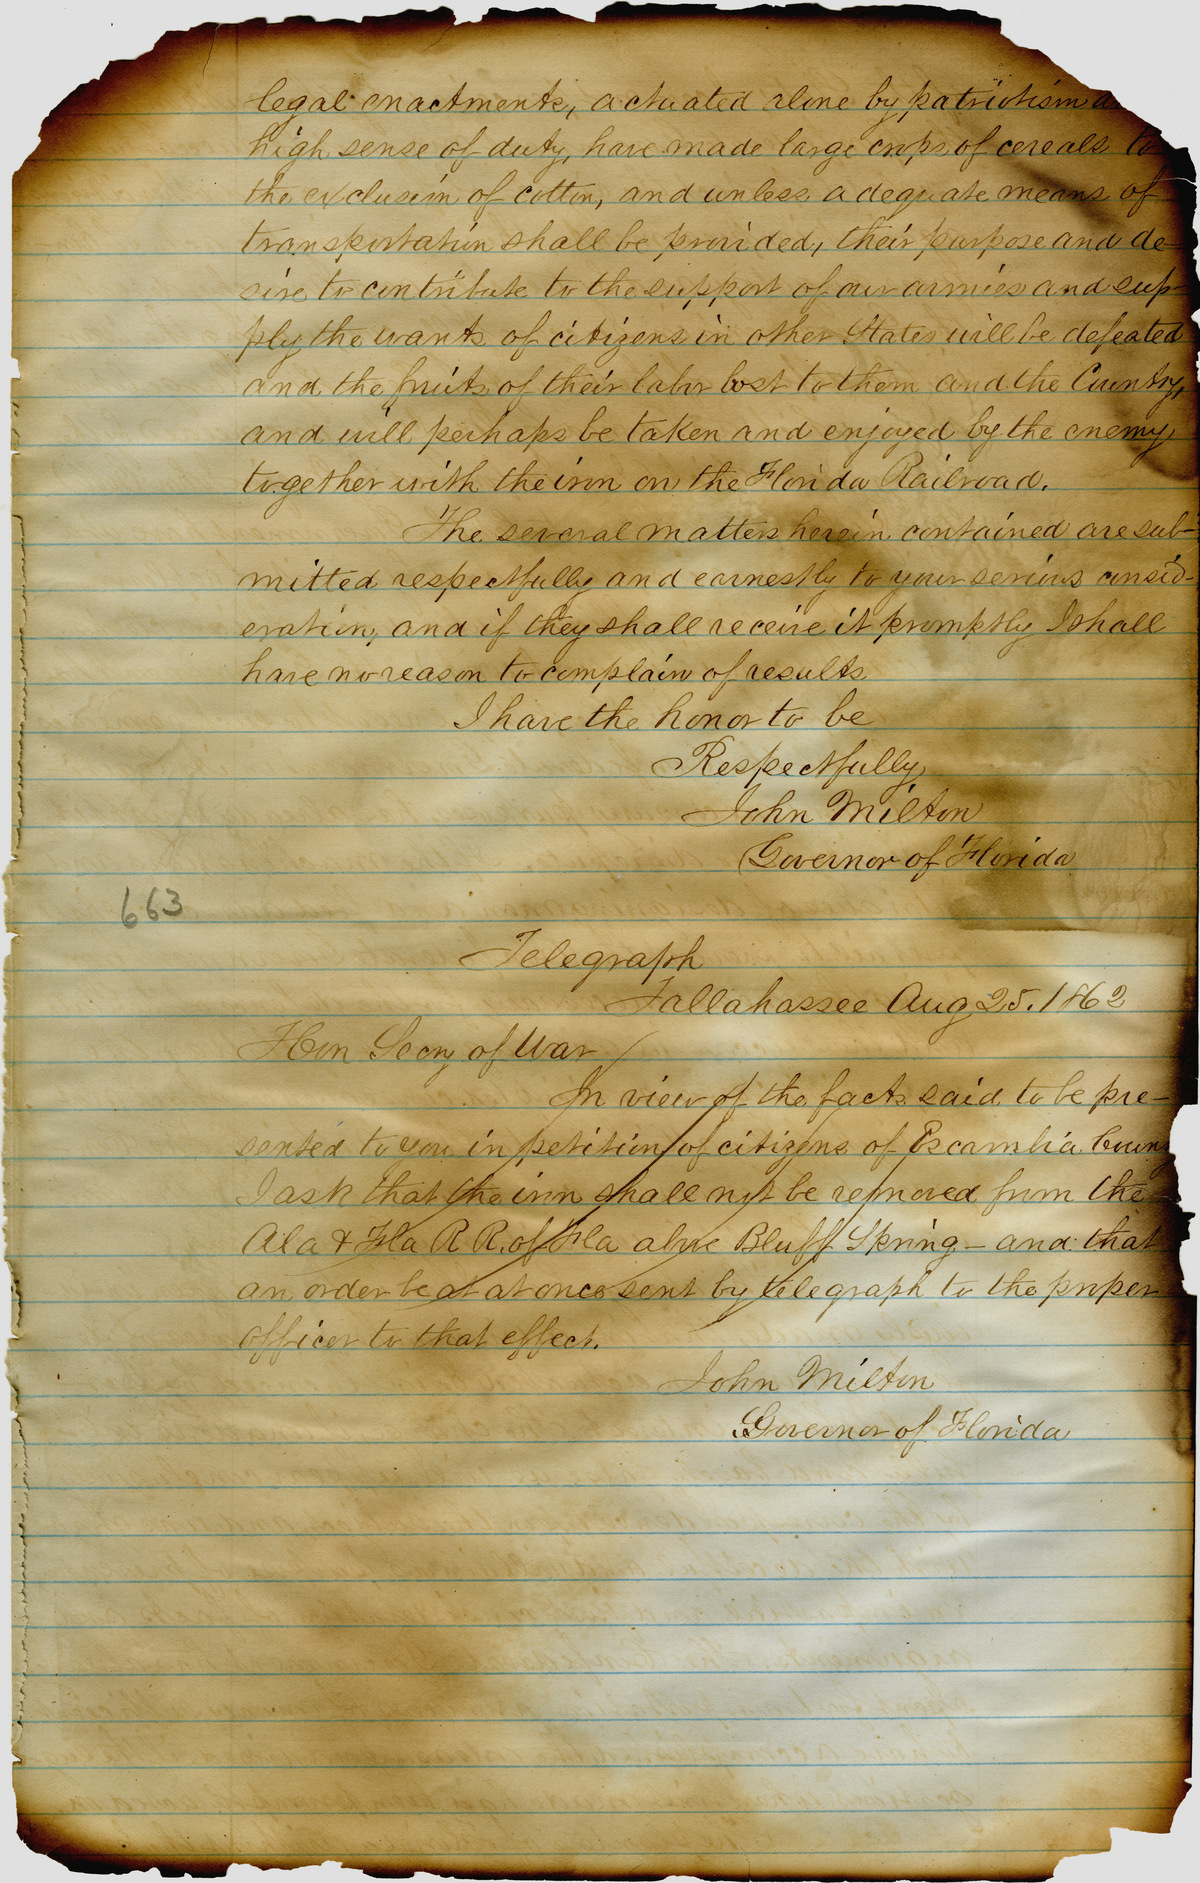 legal enactments, actuated alone by patriotism a
high sense of duty, have made large crops of cereals to
the exclusion of cotton, and unless adequate means of
transportation shall be provided, their purpose and de-
sire to contribute to the support of our armies and sup-
ply the wants of citizens in other States will be defeated
and the fruits of their labor lost to them and the Country,
and will perhaps be taken and enjoyed by the enemy,
together with the iron on the Florida Railroad.
The several matters herein contained are sub-
mitted respectfully and earnestly to your serious consid-
eration, and if they shall receive it promptly I shall
have no reason to complain of results
I have the honor to be
Respectfully
John Milton
Governor of Florida
663
Telegraph
Tallahassee Aug 25. 1862
Hon Secry of War
In view of the facts said to be pre-
sented to you in petition of citizens of Escambia County
I ask that the iron shall not be removed from the
Ala & Fla R R. of Fla above Bluff Spring - and that
an order be at at once sent by telegraph to the proper
officer to that effect.
John Milton
Governor of Florida